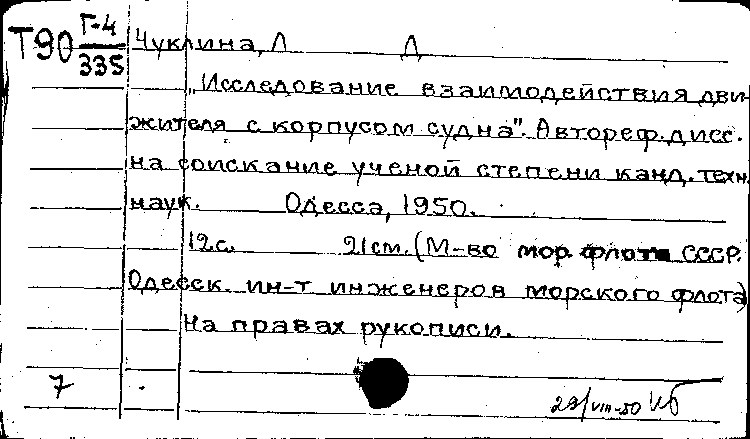 Т90 Г-4/335 Чуклина, Л Д
„Исследование взаимодействия дви-
жителя с корпусом судна". Автореф. дисс.
на соискание ученой степени канд. техн.
наук. Одесса, 1950.
12 с. 21 см. (М-во мор. флота СССР.
Одесск. ин-т инженеров морского флота)
На правах рукописи.
7
/VIII-50